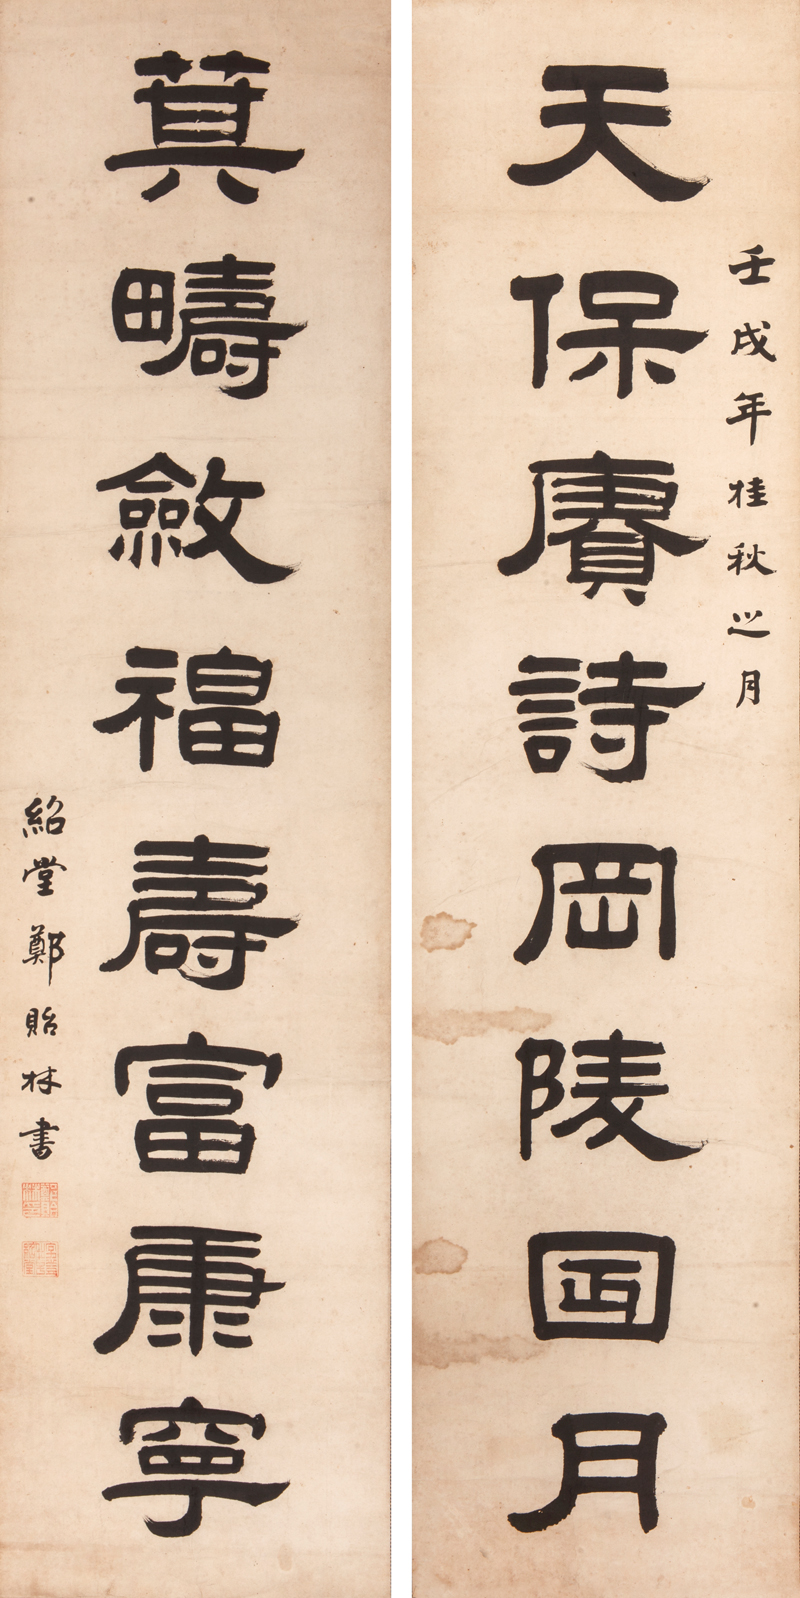 天保賡詩岡陵月
壬戌年桂秋之月
萁疇斂福壽富康寧
紹堂鄭貽林書